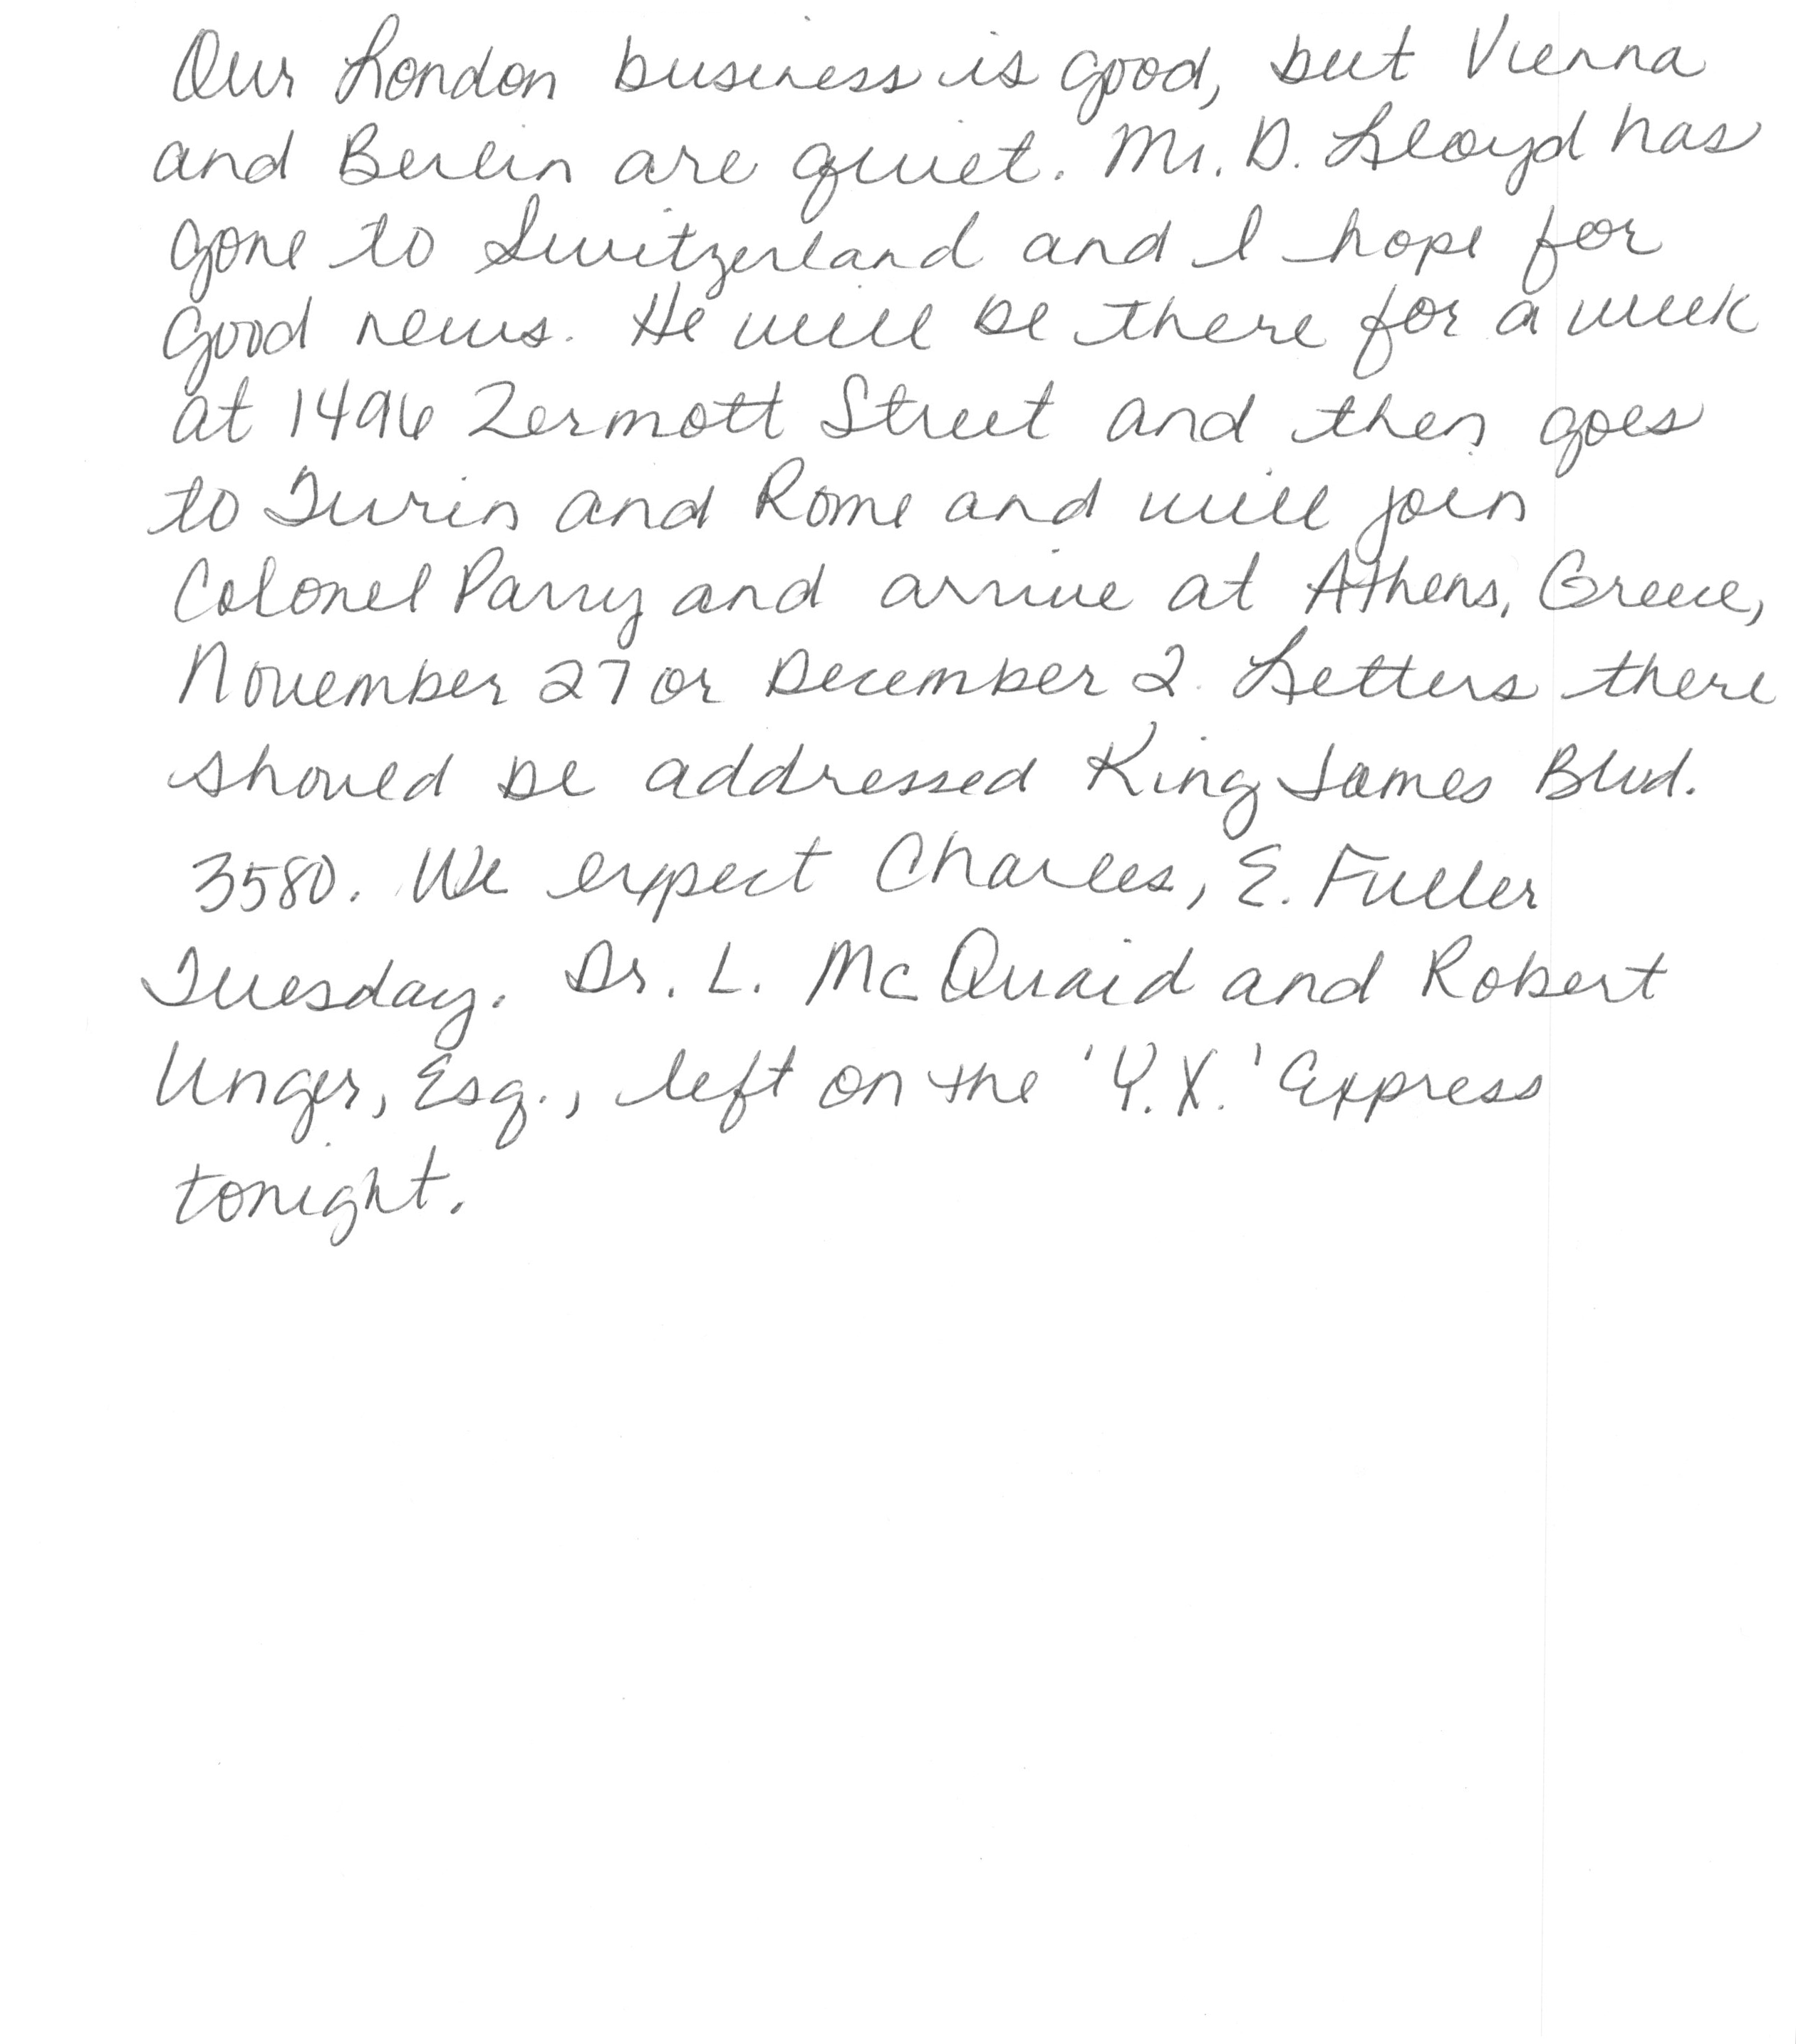 Our London business is good, but Vienna
and Berlin are quiet. Mr. D. Lloyd has
gone to Switzerland and I hope for
good news. He will be there for a week
at 1496 Zermott Street and then goes
to Turin and Rome and will join
Colonel Parry and arrive at Athens, Greece,
November 27 or December 2. Letters there
should be addressed King James Blvd.
3580. We expect Charles, E. Fuller
Tuesday. Dr. L. McQuaid and Robert
Unger, Esq., left on the 'Y.X.' Express
tonight.